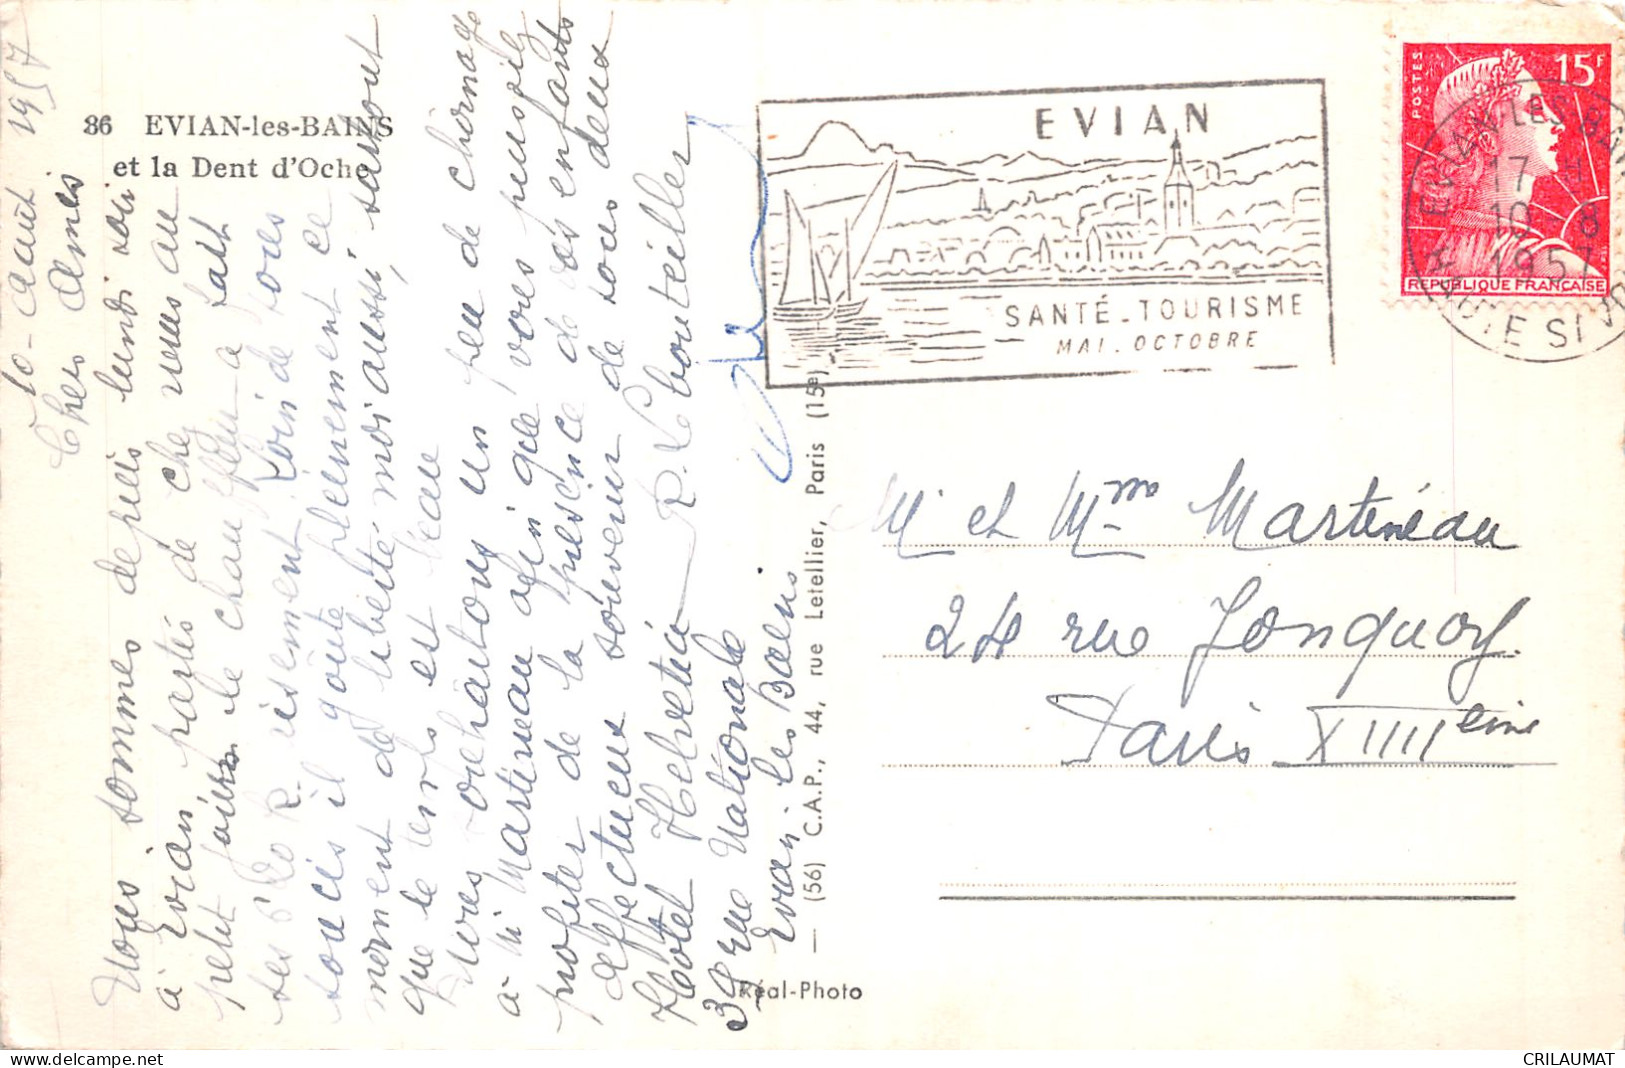 86 EVIAN-les-BAINS
et la Dent d'Oche
10 - août 1957
Chers Amis
Nous sommes depuis lundi soir
à Evian partis de chez nous au
petit jour le chauffeur a fait
ses 560 K aisément. Loin de tous
soucis il goûte pleinement ce
moment de liberté - moi aussi, surtout
que le temps est beau
Nous souhaitons un peu de chômage
à M Martineau afin que vous puissiez
profiter de la présence de vos enfants
affectueux souvenir de nous deux
R. Lbouteiller
Hotel Helvetia
38 rue Nationale
Evian-les Bains
(56) C.A.P., 44, rue Letellier, Paris (15e)
Réal-Photo
EVIAN
SANTÉ - TOURISME
MAI. OCTOBRE
POSTES
15F
REPUBLIQUE FRANÇAISE
EVIAN LES BAINS
17 H
10 8
1957
HAUTE SAVOIE
M et Mme Martineau
28 rue Jonquoy.
Paris XIIIIeime
CRILAUMAT
delcampe.net